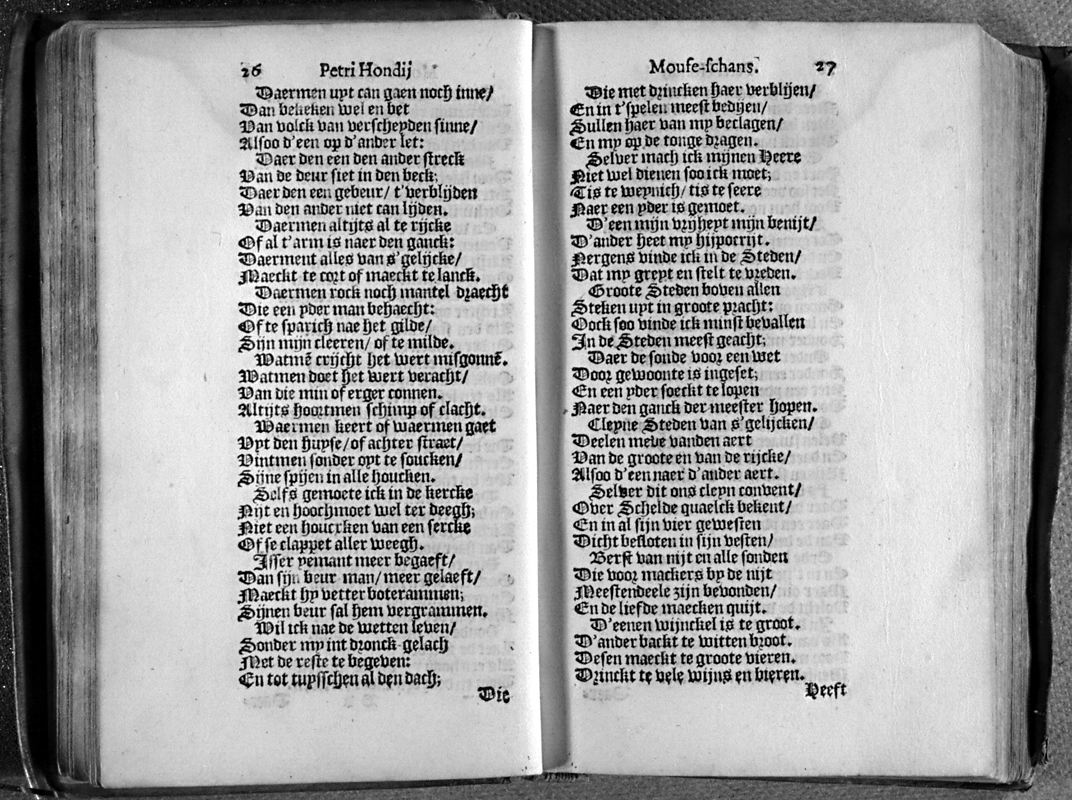 26 Petri Hondij
Daermen uyt can gaen noch inne/
Dan bekeken wel en bet
Van volck van verscheyden sinne/
Alsoo d'een op d'ander let:
Daer den een den ander streck
Van de deur siet in den beck;
Daer den een gebeur/ t'verblijden
Van den ander niet can lijden.
Daermen altijts al te rijcke
Of al t'arm is naer den ganck:
Daerment alles van s'gelijcke/
Maeckt te cort of maeckt te lanck.
Daermen rock noch mantel draecht
Die een yder man behaecht:
Of te sparich nae het gilde/
Sijn mijn cleeren/ of te milde.
Watmē crijcht het wert misgonnē.
Watmen doet het wert veracht/
Van die min of erger connen.
Altijts hoortmen schimp of clacht.
Waermen keert of waermen gaet
Vyt den huyse/ of achter straet/
Vintmen sonder oyt te soucken/
Sijne spijen in alle houcken.
Selfs gemoete ick in de kercke
Nijt en hoochmoet wel ter deegh;
Niet een houcrken van een sercke
Of se clappet aller weegh.
Isser yemant meer begaeft/
Dan sijn beur man/ meer gelaeft/
Maeckt hy vetter boterammen;
Sijnen beur sal hem vergrammen.
Wil ick nae de wetten leven/
Sonder my int dronck-gelach
Met de reste te begeven:
En tot tuysschen al den dach;
Die
Mouse-schans. 27
Die met drincken haer verblijen/
En in t'spelen meest bedijen/
Sullen haer van my beclagen/
En my op de tonge dragen.
Selver mach ick mijnen Heere
Niet wel dienen soo ick moet;
Tis te weynich/ tis te seere
Naer een yder is gemoet.
D'een mijn vrijheyt mijn benijt/
D'ander heet my hijpocrijt.
Nergens vinde ick in de Steden/
Dat my greyt en stelt te vreden.
Groote Steden boven allen
Steken uyt in groote pracht:
Oock soo vinde ick minst bevallen
In de Steden meest geacht;
Daer de sonde voor een wet
Door gewoonte is ingeset;
En een yder soeckt te lopen
Naer den ganck der meester hopen.
Cleyne Steden van s'gelijcken/
Deelen meve vanden aert
Van de groote en van de rijcke/
Alsoo d'een naer d'ander aert.
Selver dit ons cleyn convent/
Over Schelde quaelck bekent/
En in al sijn vier gewesten
Dicht besloten in sijn vesten/
Berst van nijt en alle sonden
Die voor mackers by de nijt
Meestendeele zijn bevonden/
En de liefde maecken quijt.
D'eenen wijnckel is te groot.
D'ander backt te witten broot.
Desen maeckt te groote vieren.
Drinckt te vele wijns en bieren.
Heeft